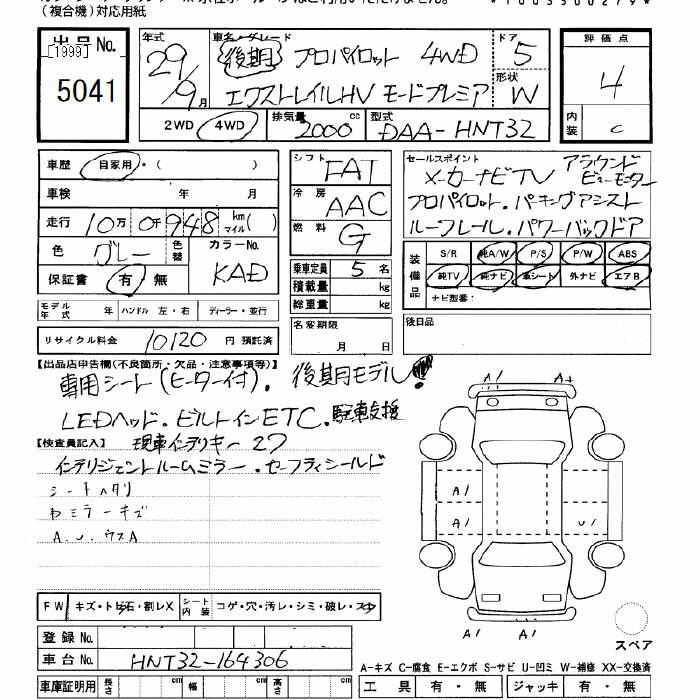 (複合機)対応用紙
*1003500279*
出品No.
[1999]
5041
年式
29/9月
車名・グレード
後期 プロパイロット 4WD
エクストレイルHV モードプレミア
ドア
5
形状
W
評価点
4
内装
C
2WD 4WD
排気量 2000 cc
型式 DAA-HNT32
車歴 自家用・( )
車検 年 月
走行 10万 0千 948 km マイル( )
色 グレー 色替 カラーNo. KAD
保証書 有・無
シフト FAT
冷房 AAC
燃料 G
乗車定員 5 名
積載量 kg
総重量 kg
セールスポイント
メーカーナビTV アラウンドビューモニター
プロパイロット.パーキングアシスト
ルーフレール.パワーバックドア
装備品
S/R 純A/W P/S P/W ABS
純TV 純ナビ 革シート 外ナビ エアB
ナビ型番:
モデル年式 年 ハンドル 左・右 ディーラー・並行
リサイクル料金 10120 円 預託済
名変期限 月 日
後日品
【出品店申告欄(不良箇所・欠品・注意事項等)】
専用シート(ヒーター付). 後期用モデル!
LEDヘッド.ビルトインETC.駐車支援
【検査員記入】 現車インテリキー2ケ
インテリジェントルームミラー.セーフティシールド
シートヘタリ
わミラーキズ
A.U.ウスA
A1 A+
A1
A1 U1
A1 A1
スペア
FW キズ・トビ石・割レX シート内装 コゲ・穴・汚レ・シミ・破レ・スレ
登録No.
車台No. HNT32-164306
A-キズ C-腐食 E-エクボ S-サビ U-凹ミ W-補修 XX-交換済
車庫証明用 長さ cm 幅 cm 高さ cm
工具 有・無 ジャッキ 有・無